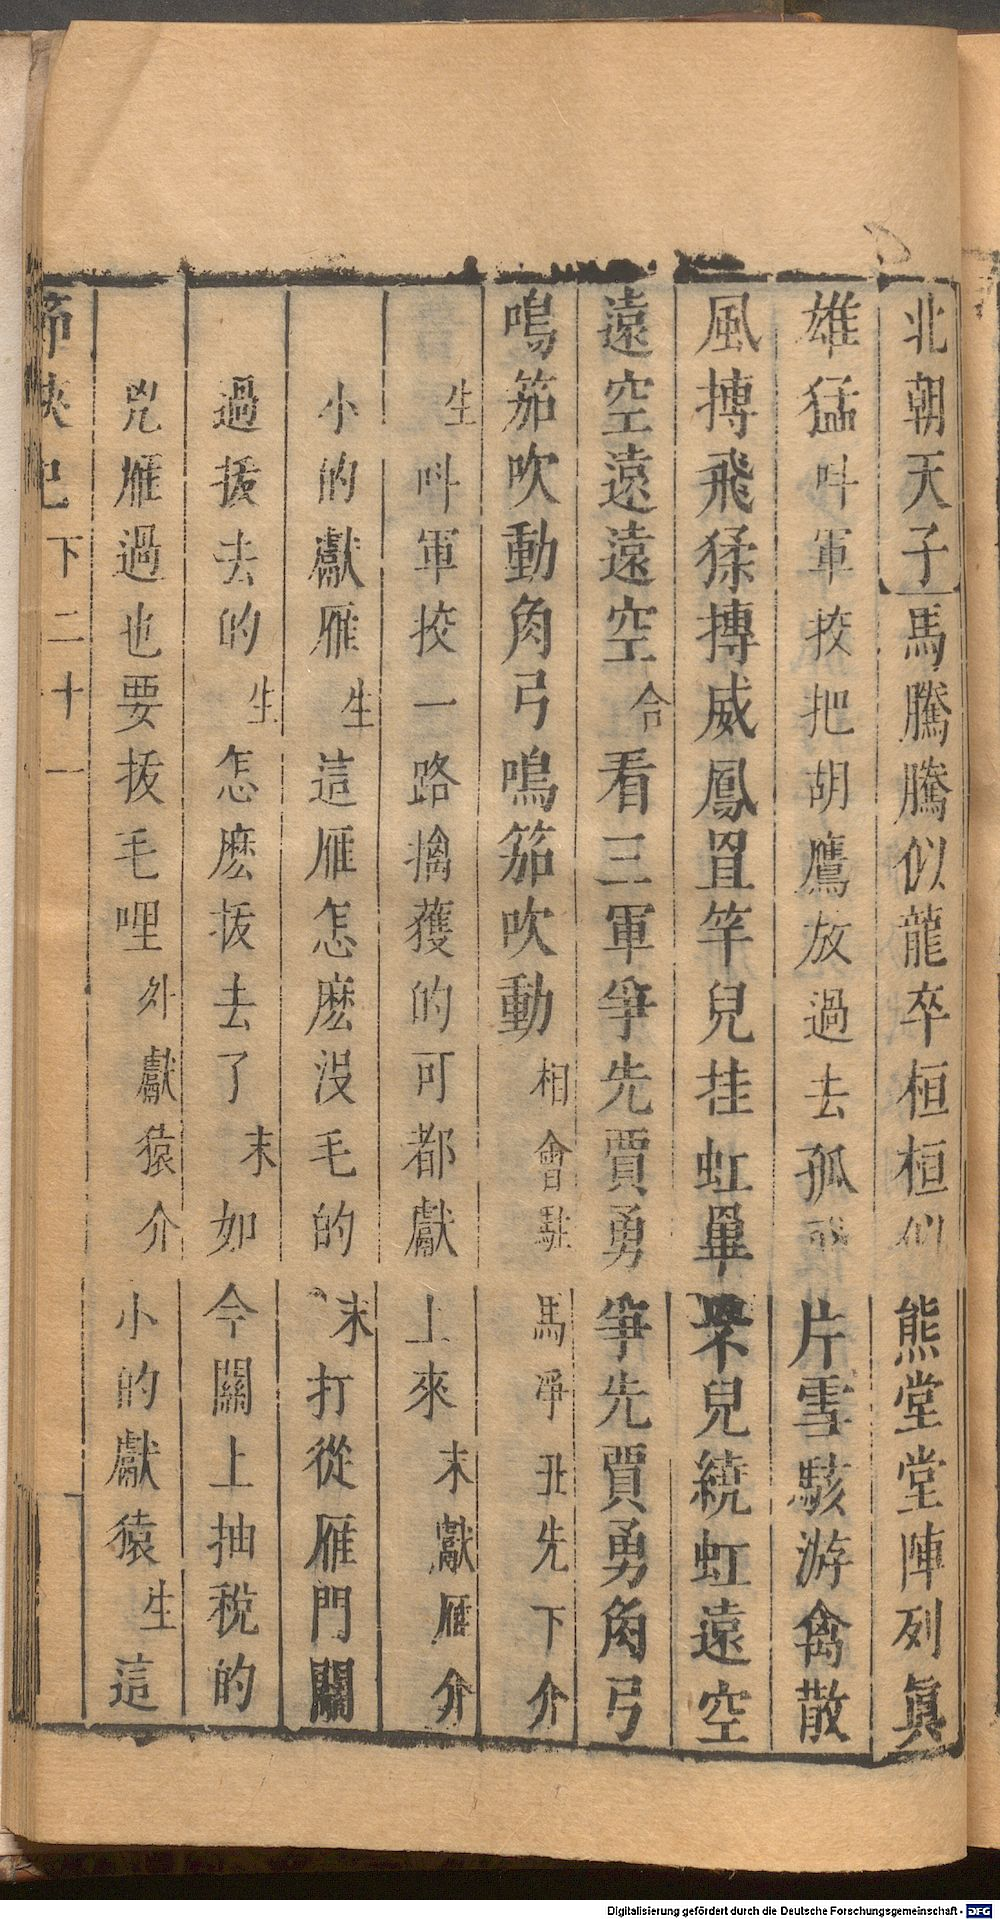 北朝天子馬騰騰似龍卒桓桓似熊堂堂陣列眞
雄猛叫軍挍把胡鷹放過去孤飛片雪駭游禽散
風搏飛猱搏威鳳罝竿兒挂虹畢罘兒繞虹遠空
遠空遠遠空合看三軍爭先賈勇爭先賈勇角弓
鳴笳吹動角弓鳴笳吹動相會駐馬淨丑先下介
生叫軍挍一路擒獲的可都獻上來末獻雁介
小的獻雁生這雁怎麽沒毛的末打從雁門關
過拔去的生怎麽拔去了末如今關上抽稅的
兇雁過也要拔毛哩外獻猿介小的獻猿生這
節俠記 下 二十一
Digitalisierung gefördert durch die Deutsche Forschungsgemeinschaft - DFG